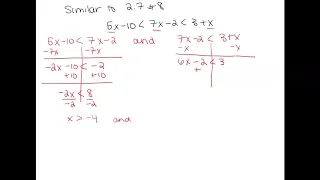 Similar to 2.7 #8
5x-10 < 7x-2 < 3+x
5x-10 < 7x-2 and 7x-2 < 3+x
-7x -7x -x -x
-2x-10 < -2 6x-2 < 3
+10 +10 +
-2x < 8
-2 -2
x > -4 and